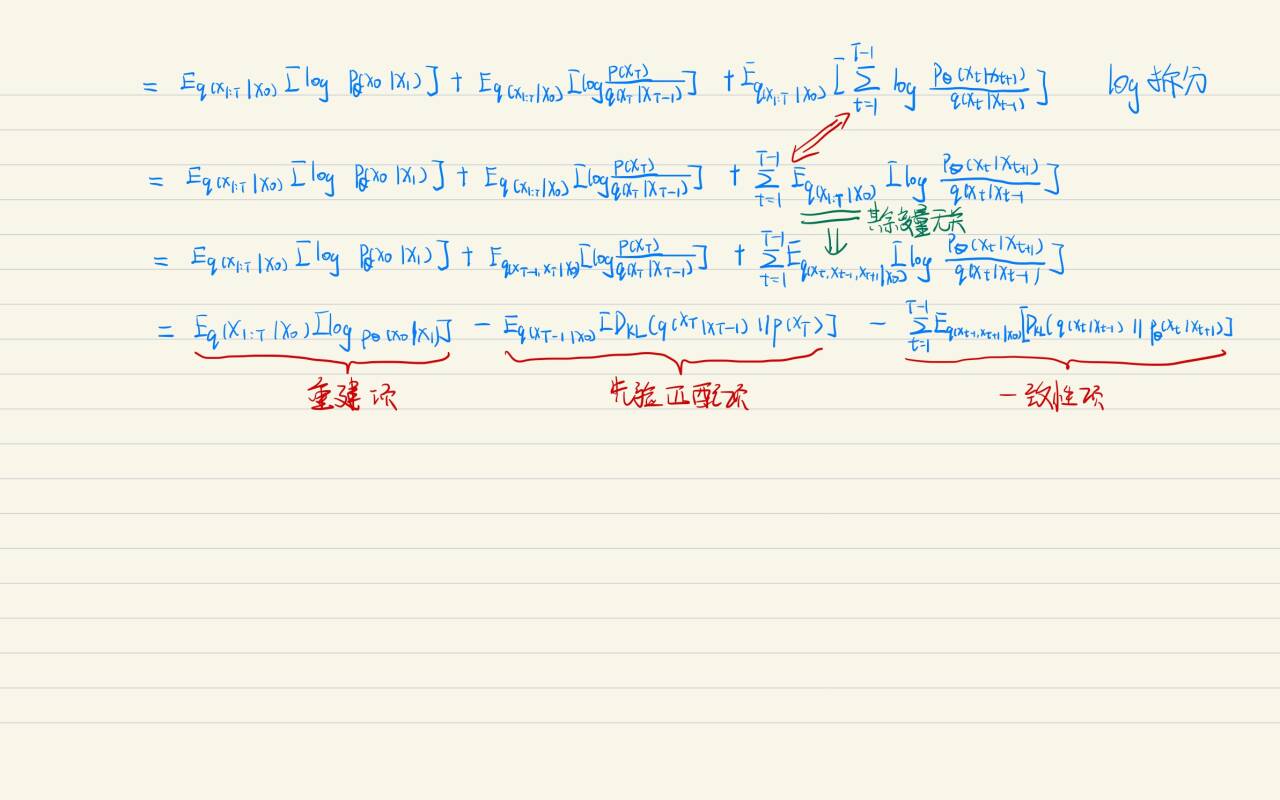 = E_{q(x_{1:T}|x_0)} [log p_θ(x_0|x_1)] + E_{q(x_{1:T}|x_0)} [log \frac{p(x_T)}{q(x_T|x_{T-1})}] + E_{q(x_{1:T}|x_0)} [\sum_{t=1}^{T-1} log \frac{p_θ(x_t|x_{t+1})}{q(x_t|x_{t-1})}] log 拆分
= E_{q(x_{1:T}|x_0)} [log p_θ(x_0|x_1)] + E_{q(x_{1:T}|x_0)} [log \frac{p(x_T)}{q(x_T|x_{T-1})}] + \sum_{t=1}^{T-1} E_{q(x_{1:T}|x_0)} [log \frac{p_θ(x_t|x_{t+1})}{q(x_t|x_{t-1}}]
其余变量无关
= E_{q(x_{1:T}|x_0)} [log p_θ(x_0|x_1)] + E_{q(x_{T-1},x_T|x_0)} [log \frac{p(x_T)}{q(x_T|x_{T-1})}] + \sum_{t=1}^{T-1} E_{q(x_t,x_{t-1},x_{t+1}|x_0)} [log \frac{p_θ(x_t|x_{t+1})}{q(x_t|x_{t-1})}]
= E_{q(x_{1:T}|x_0)} [log p_θ(x_0|x_1)] - E_{q(x_{T-1}|x_0)} [D_{KL}(q(x_T|x_{T-1}) || p(x_T)] - \sum_{t=1}^{T-1} E_{q(x_{t-1},x_{t+1}|x_0)} [D_{KL}(q(x_t|x_{t-1}) || p_θ(x_t|x_{t+1})]
重建项 先验匹配项 一致性项